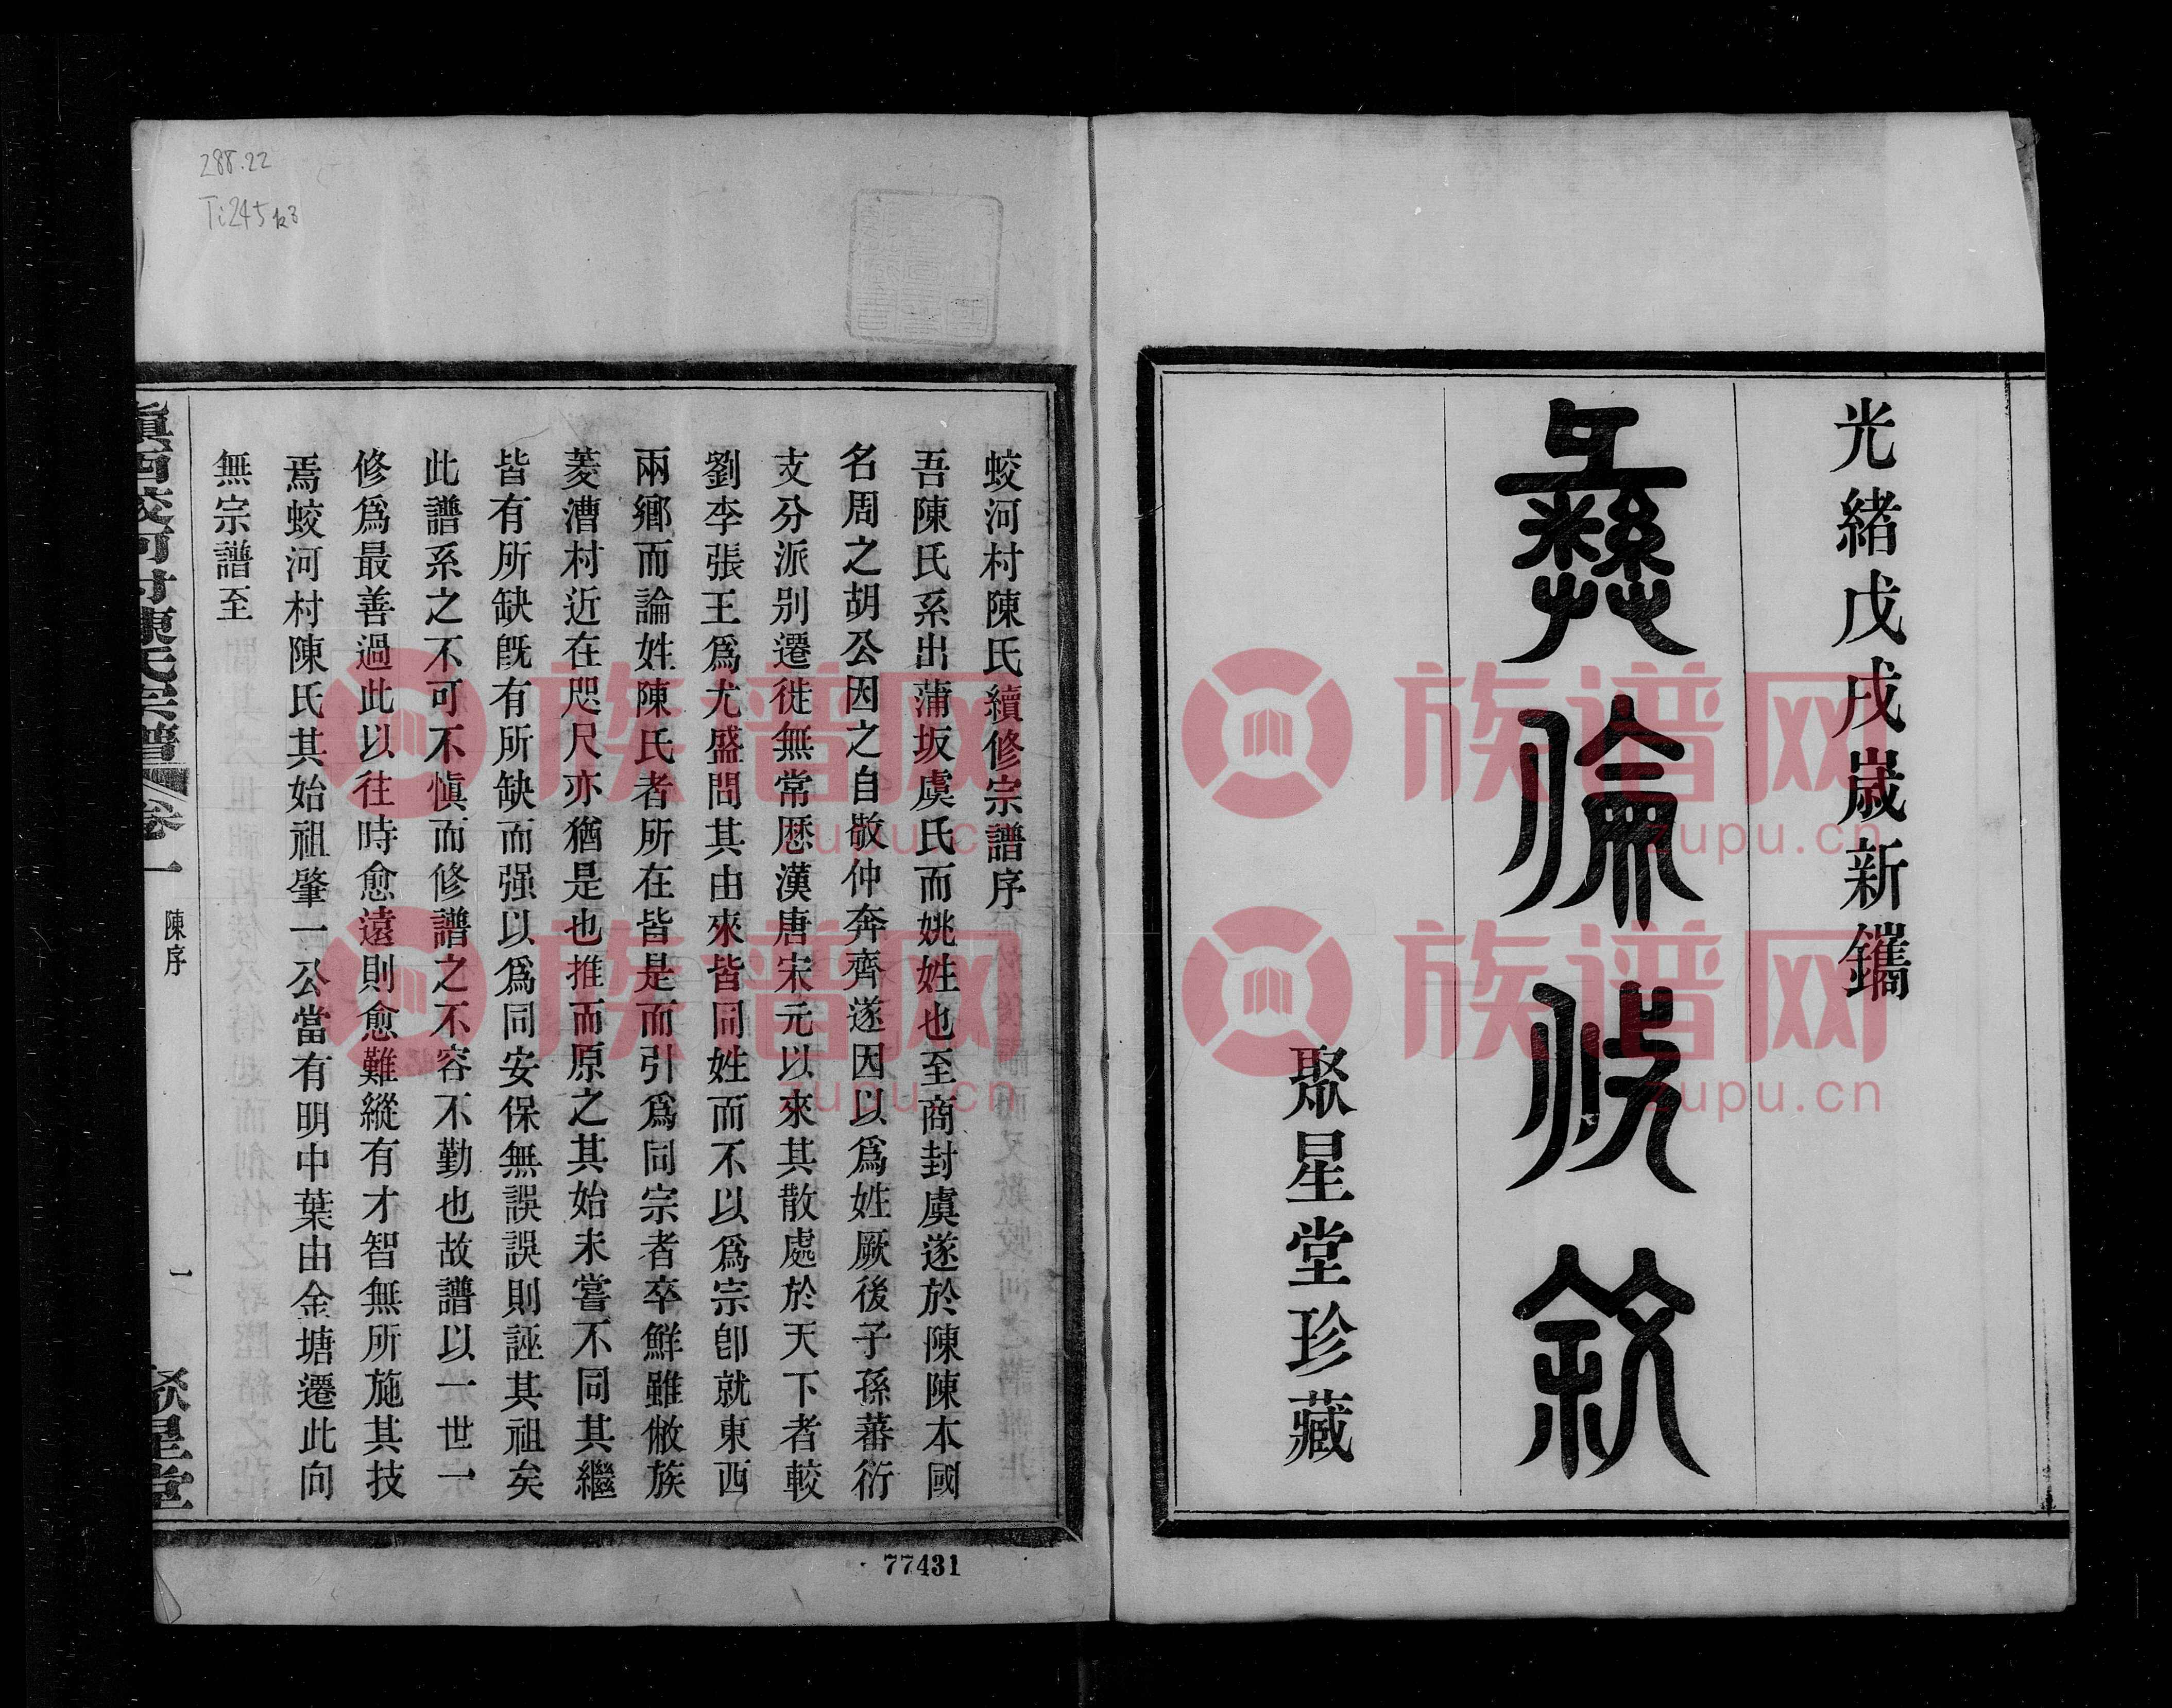 光緒戊戌歲新鐫
彝倫攸敘
聚星堂珍藏
蛟河村陳氏續修宗譜序
吾陳氏系出蒲坂虞氏而姚姓也至商封虞遂於陳陳本國
名周之胡公因之自敬仲奔齊遂因以爲姓厥後子孫蕃衍
支分派別遷徙無常歷漢唐宋元以來其散處於天下者較
劉李張王爲尤盛問其由來皆同姓而不以爲宗卽就東西
兩鄉而論姓陳氏者所在皆是而引爲同宗者卒鮮雖敝族
菱漕村近在咫尺亦猶是也推而原之其始未嘗不同其繼
皆有所缺旣有所缺而强以爲同安保無誤誤則誣其祖矣
此譜系之不可不慎而修譜之不容不勤也故譜以一世一
修爲最善過此以往時愈遠則愈難縱有才智無所施其技
焉蛟河村陳氏其始祖肇一公當有明中葉由金塘遷此向
無宗譜至
鎮西蛟河村陳氏宗譜 卷一 陳序 一 聚星堂
288.22
Ti245k3
77431
族谱网
zupu.cn
族谱网
zupu.cn
族谱网
zupu.cn
族谱网
zupu.cn